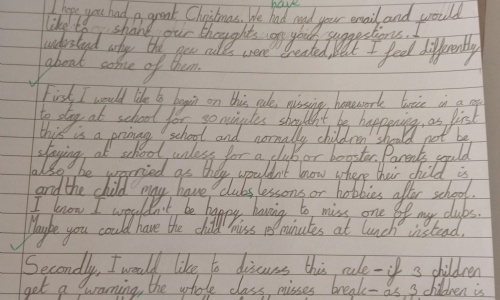 have
I hope you had a great Christmas. We had read your email, and would
like to share our thoughts on your suggestions. I
understand why the new rules were created, but I feel differently
about some of them.
First, I would like to begin on this rule, missing homework twice in a row
to stay at school for 30 minutes shouldn't be happening, as first
this is a primary school and normally children should not be
staying at school unless for a club or booster. Parents would
also be worried as they wouldn't know where their child is
and the child may have clubs, lessons or hobbies after school.
I know I wouldn't be happy having to miss one of my clubs.
Maybe you could have the child miss 15 minutes at lunch instead.
Secondly, I would like to discuss this rule - if 3 children
get a warning the whole class misses break - as 3 children is